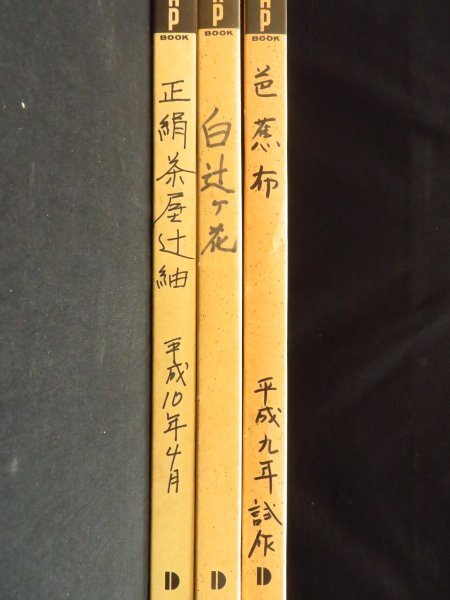 AP
BOOK
正絹茶屋辻紬
平成10年4月
D
AP
BOOK
白辻ヶ花
D
AP
BOOK
芭蕉布
平成九年試作
D